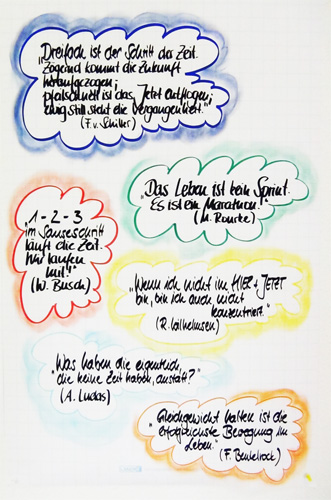 „Dreifach ist der Schritt der Zeit.
Zögernd kommt die Zukunft
herangezogen;
pfeilschnell ist das Jetzt entflogen;
ewig still steht die Vergangenheit.“
(F. v. Schiller)
„Das Leben ist kein Sprint.
Es ist ein Marathon!“
(M. Rourke)
„1-2-3
im Sauseschritt
läuft die Zeit.
Wir laufen
mit!“
(W. Busch)
„Wenn ich nicht im HIER + JETZT
bin, bin ich auch nicht
konzentriert.“
(R. Wilhelmsen)
„Was haben die eigentlich,
die keine Zeit haben, anstatt?“
(A. Lucas)
„Gleichgewicht halten ist die
erfolgreichste Bewegung im
Leben.“
(F. Beutelrock)